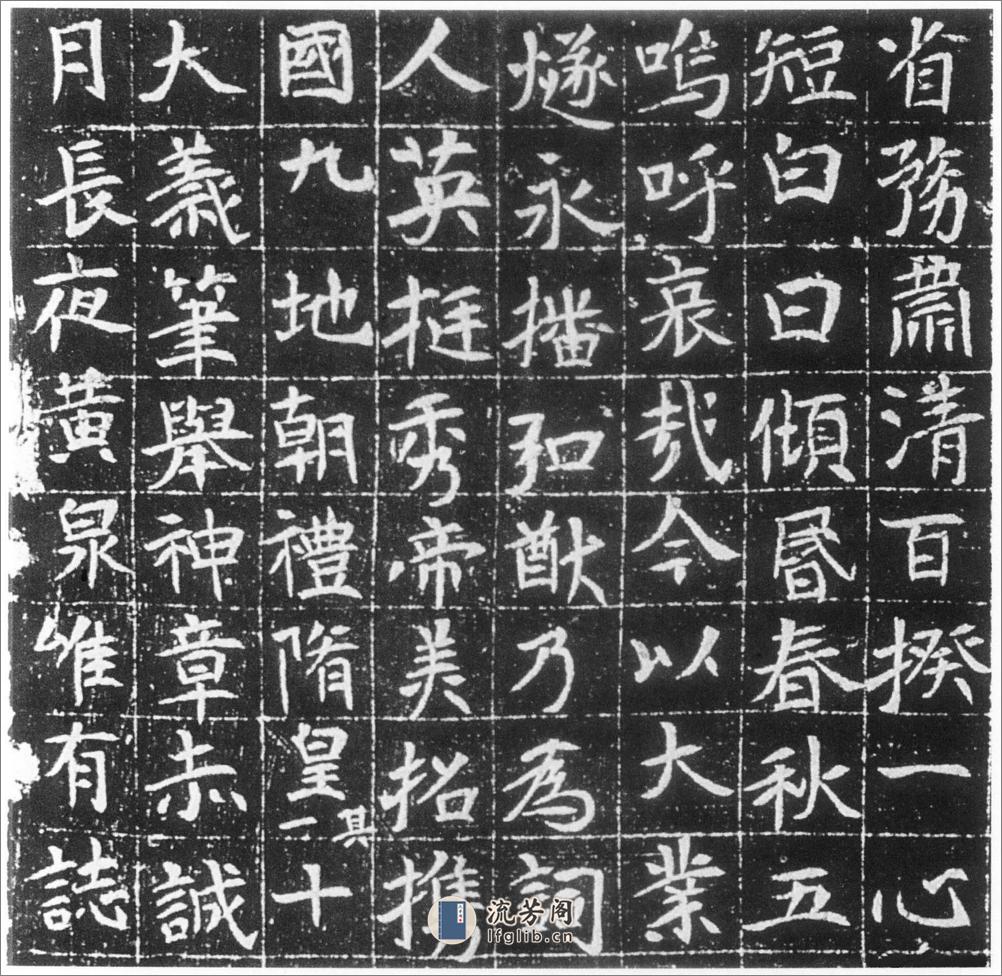 省務肅清百揆一心
短白日傾昬春秋五
嗚呼哀哉今以大業
燧永播弘猷乃為詞
人英挺秀帝美招携
國九地朝禮隋皇其一十
大義筆舉神章赤誠
月長夜黃泉唯有誌
流芳阁
lfglib.cn